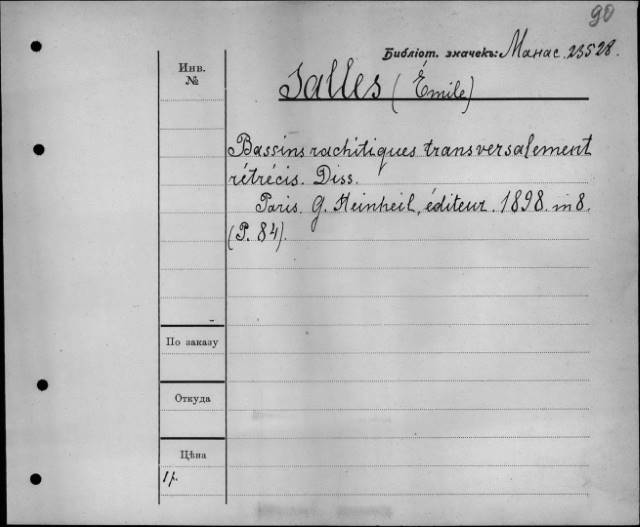 90
Библіот. значекъ: Манас. 23528.
Инв. №
Salles (Émile)
Bassins rachitiques transversalement
rétrécis. Diss.
Paris. G. Steinheil, éditeur. 1898. in 8.
(P. 84).
По заказу
Откуда
Цѣна
1 р.